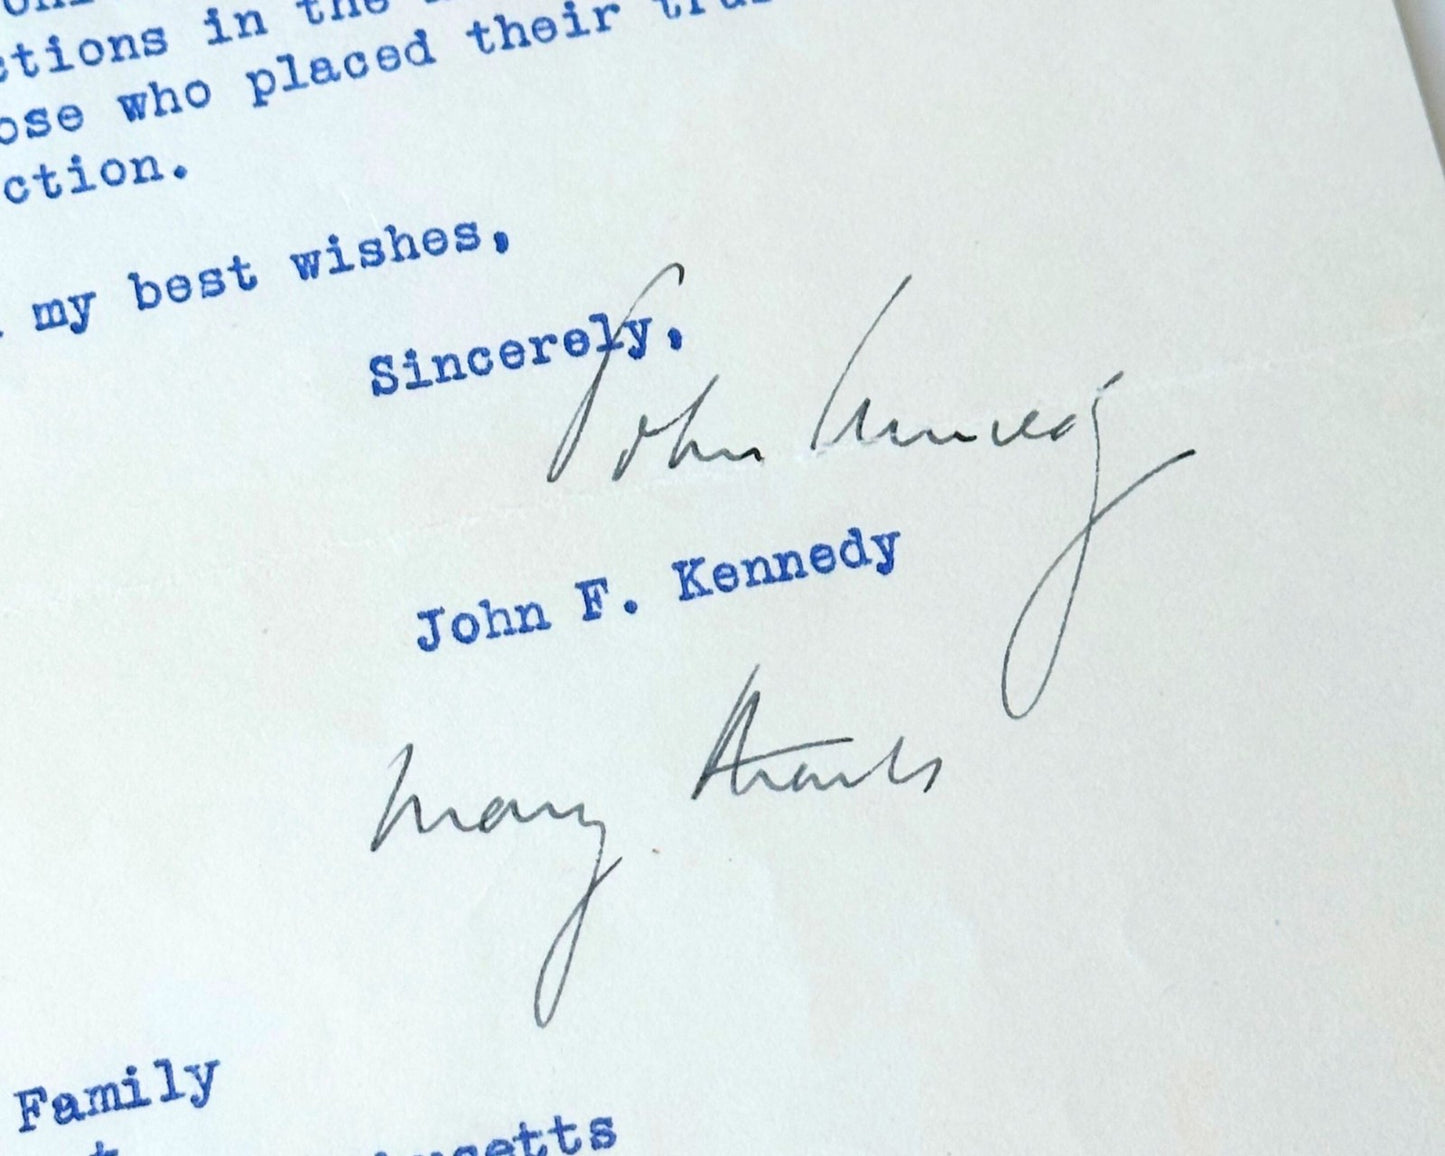 ctions in the
ose who placed their
ction.
my best wishes,
Sincerely,
John Kennedy
John F. Kennedy
Many thanks
Family